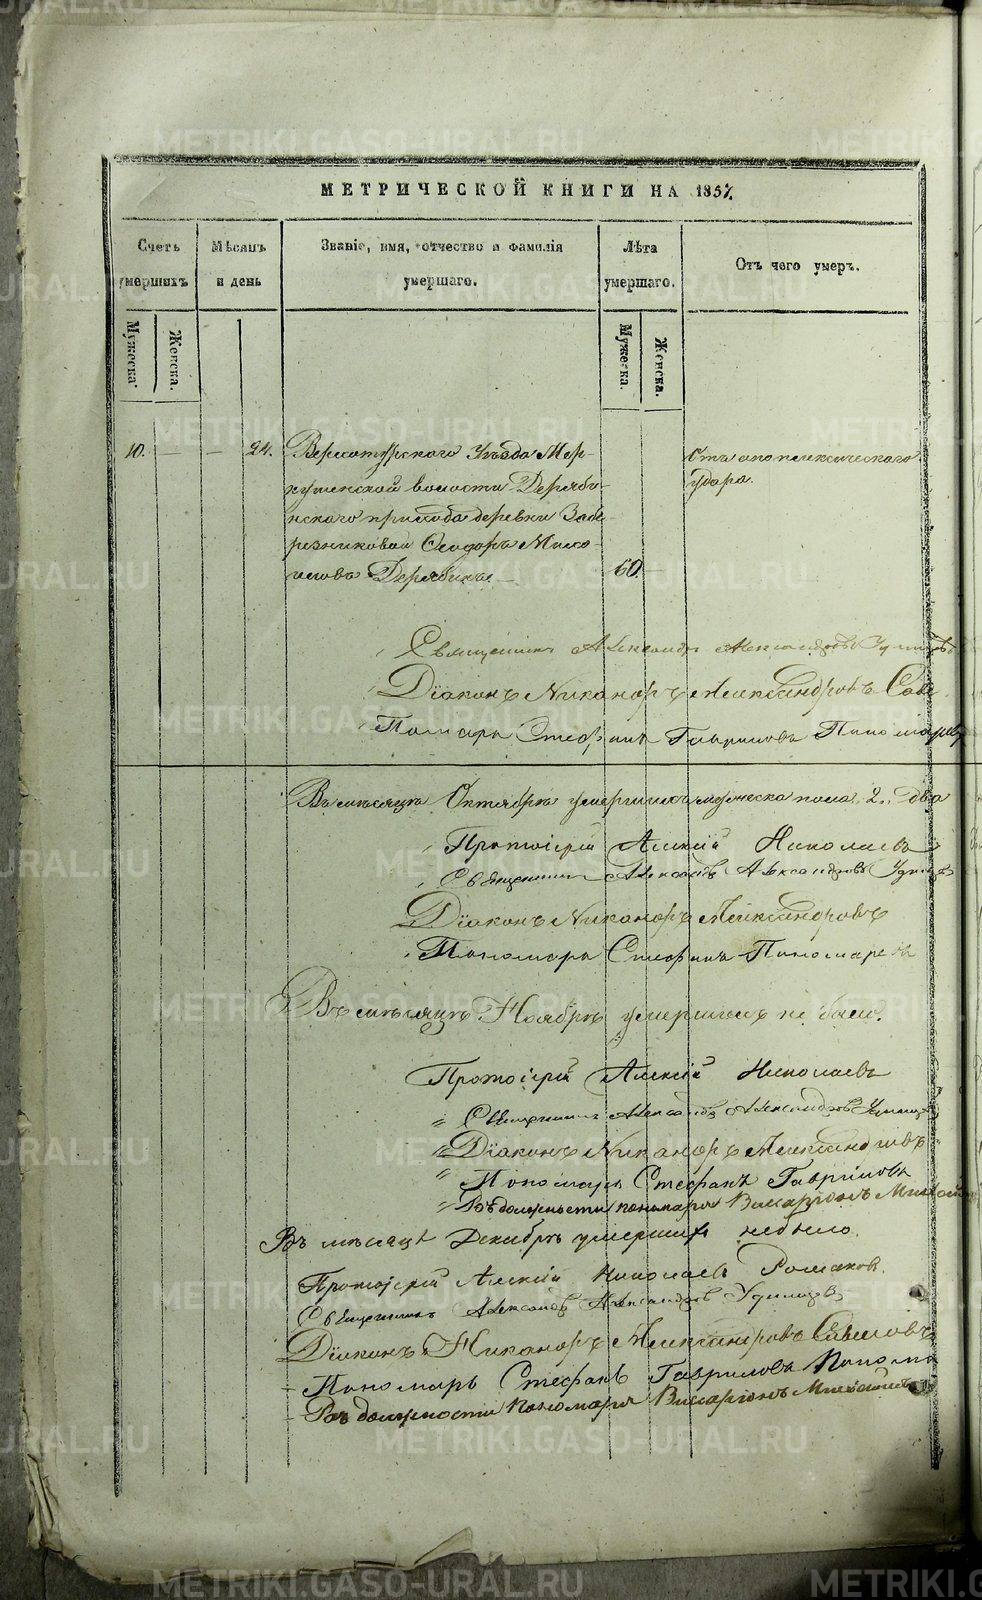 МЕТРИЧЕСКОЙ КНИГИ НА 1857.
Счетъ умершихъ
Мѣсяцъ и день
Званіе, имя, отчество и фамилія умершаго.
Лѣта умершаго.
Отъ чего умеръ.
Мужеска.
Женска.
Мужеска.
Женска.
10. — — 24. Верхотурскаго Уѣзда Мер-
кушинской волости Дерябин-
скаго прихода деревни
Ѳеодоръ
Дерябинъ — 60. —
Отъ апоплексическаго
удара.
Священникъ Александръ Александровъ Удинцовъ
Діаконъ Никаноръ Александровъ
Пономарь Стефанъ Гавриловъ Пономаревъ
Въ мѣсяцѣ Октябрѣ умершихъ мужеска пола 2. два
Протоіерей Алексій Николаевъ
Священникъ Александръ Александровъ Удинцовъ
Діаконъ Никаноръ Александровъ
Пономарь Стефанъ Пономаревъ
Въ мѣсяцѣ Ноябрѣ умершихъ не было.
Протоіерей Алексій Николаевъ
Священникъ Александръ Александровъ Удинцовъ
Діаконъ Никаноръ Александровъ
Пономарь Стефанъ Гавриловъ
въ должности пономаря Виссаріонъ
Въ мѣсяцѣ Декабрѣ умершихъ небыло.
Протоіерей Алексій Николаевъ
Священникъ Александръ Александровъ Удинцовъ
Діаконъ Никаноръ Александровъ
Пономарь Стефанъ Гавриловъ
въ должности Пономаря Виссаріонъ
METRIKI.GASO-URAL.RU